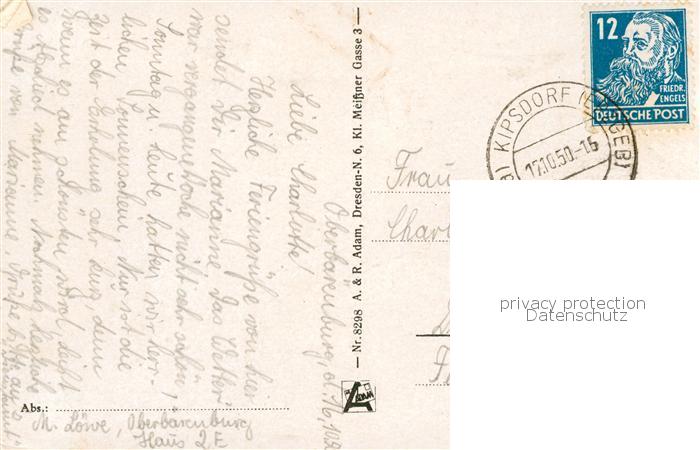 Oberbärenburg, d. 16.10.50
Liebe Charlotte!
Herzliche Feriengrüße von hier
sendet Dir Marianne. Das Wetter
war vergangene Woche nicht sehr schön,
Sonntag u. heute hatten wir herr-
lichen Sonnenschein. Nur ist die
Zeit der Erholung sehr kurz, denn
wenn es am schönsten ist, heißt
es Abschied nehmen. Nochmals herzliche
Grüße von Marianne, Grüße bitte
Abs.:
M. Löwe, Oberbärenburg
Haus 2 E
Nr. 8298 A. & R. Adam, Dresden-N. 6, Kl. Meißner Gasse 3
ADAM
Frau
Charl
12
FRIEDR.
ENGELS
DEUTSCHE POST
KIPSDORF (ERZGEB)
17.10.50.-16
privacy protection
Datenschutz